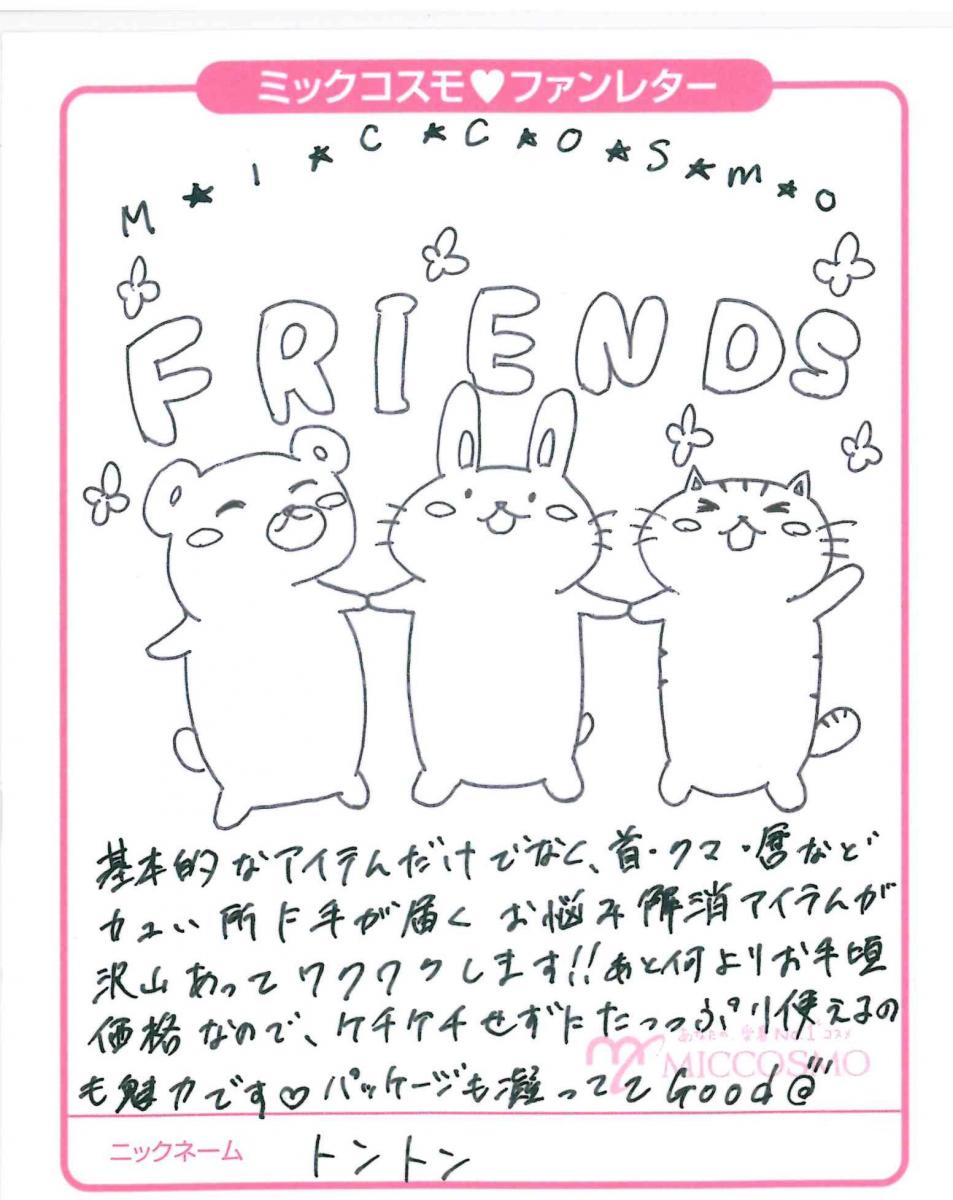 ミックコスモ♥ファンレター
M★I★C★C★O★S★m★o
FRIENDS
基本的なアイテムだけでなく、首・クマ・唇など
カユい所に手が届くお悩み解消アイテムが
沢山あってワクワクします!!あと何よりお手頃
価格なので、ケチケチせずにたっっぷり使えるの
あなたの、愛着No.1コスメ
MICCOSMO
も魅力です♡パッケージも凝っててGood@'''
ニックネーム
トントン